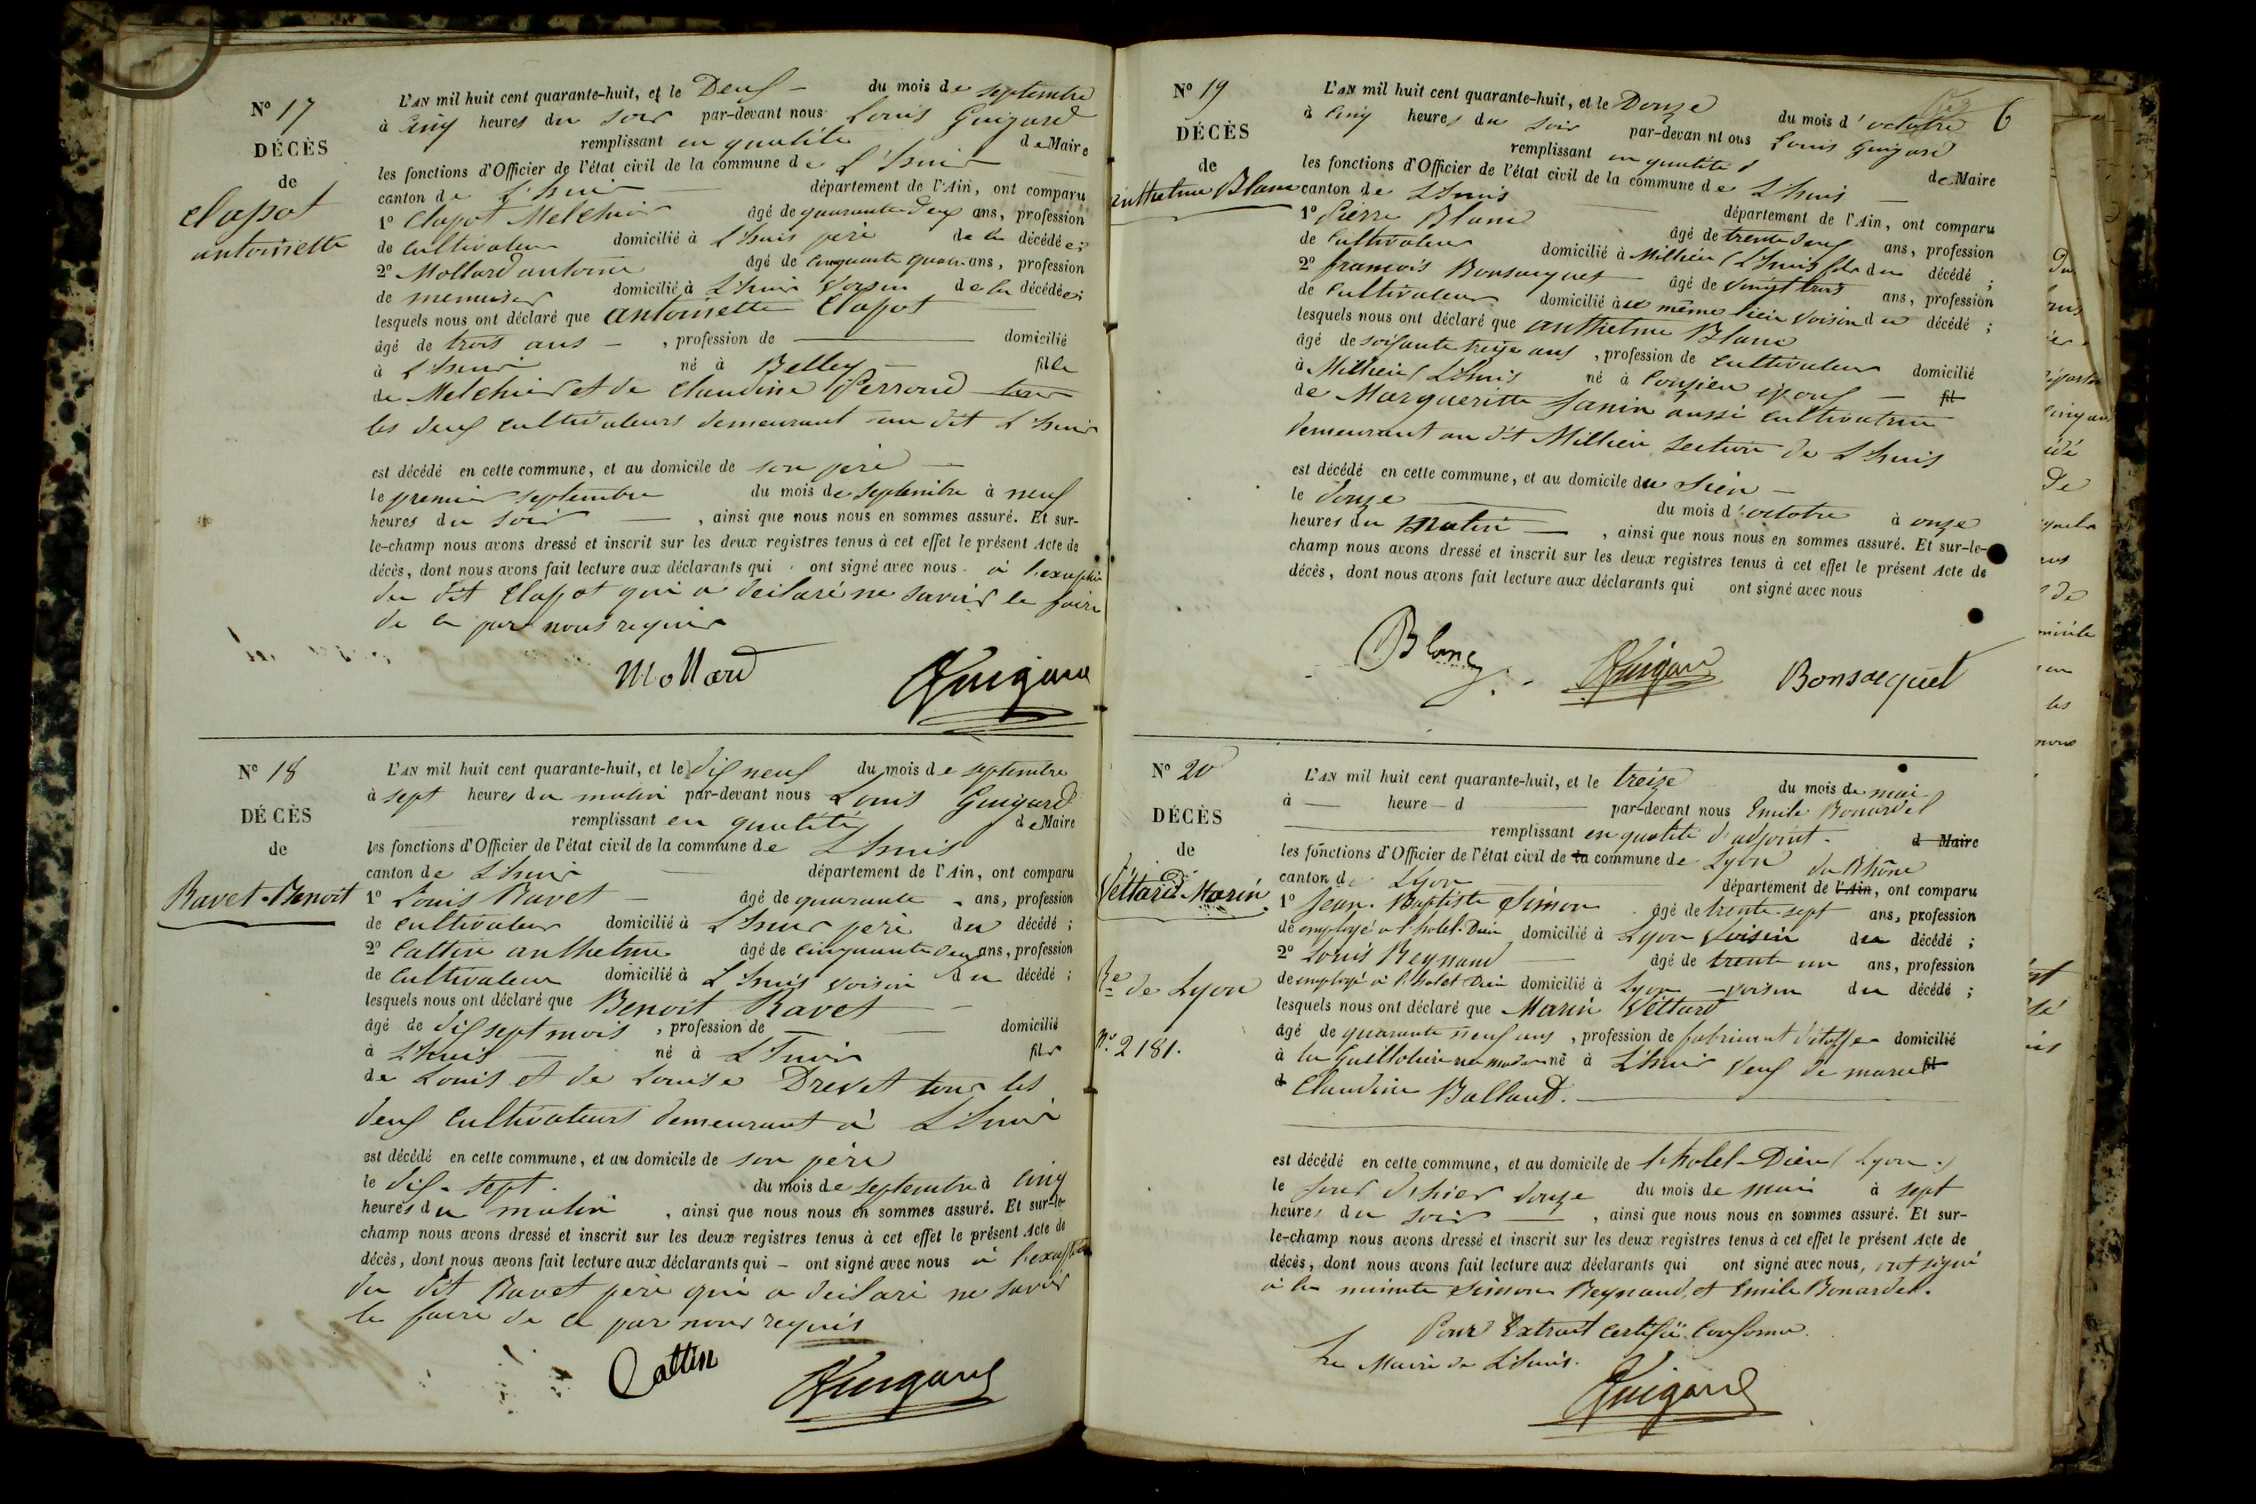 N° 17
DÉCÈS
de
Clapot
antoinette
L'AN mil huit cent quarante-huit, et le Deux du mois de septembre
à cinq heures du soir par-devant nous Louis Guigard
remplissant en qualité de Maire
les fonctions d'Officier de l'état civil de la commune de L'huis
canton de L'huis département de l'Ain, ont comparu
1° Clapot Melchior âgé de quarante deux ans, profession
de cultivateur domicilié à L'huis père de la décédée;
2° Mollard antoine âgé de cinquante quatre ans, profession
de menuisier domicilié à L'huis voisin de la décédée;
lesquels nous ont déclaré que antoinette Clapot
âgé de trois ans , profession de domicilié
à L'huis né à Belley fille
de Melchior et de Claudine Perroud tous
les deux cultivateurs demeurant au dit L'huis
est décédé en cette commune, et au domicile de son père
le premier septembre du mois de septembre à neuf
heures du soir , ainsi que nous nous en sommes assuré. Et sur-
le-champ nous avons dressé et inscrit sur les deux registres tenus à cet effet le présent Acte de
décès, dont nous avons fait lecture aux déclarants qui ont signé avec nous à l'exception
du dit Clapot qui a déclaré ne savoir le faire
de ce par nous requis
Mollard Guigard
N° 18
DÉCÈS
de
Ravet Benoit
L'AN mil huit cent quarante-huit, et le dix neuf du mois de septembre
à sept heures du matin par-devant nous Louis Guigard
remplissant en qualité de Maire
les fonctions d'Officier de l'état civil de la commune de L'huis
canton de L'huis département de l'Ain, ont comparu
1° Louis Ravet âgé de quarante ans, profession
de cultivateur domicilié à L'huis père du décédé;
2° Cattin anthelme âgé de cinquante deux ans, profession
de cultivateur domicilié à L'huis voisin du décédé;
lesquels nous ont déclaré que Benoit Ravet
âgé de dix sept mois , profession de domicilié
à L'huis né à L'huis fils
de Louis et de Louise Drevet tous les
deux cultivateurs demeurant à L'huis
est décédé en cette commune, et au domicile de son père
le dix-sept du mois de septembre à cinq
heures du matin , ainsi que nous nous en sommes assuré. Et sur-le-
champ nous avons dressé et inscrit sur les deux registres tenus à cet effet le présent Acte de
décès, dont nous avons fait lecture aux déclarants qui ont signé avec nous à l'exception
du dit Ravet père qui a déclaré ne savoir
le faire de ce par nous requis
Cattin Guigard
6
N° 19
DÉCÈS
de
anthelme Blanc
L'AN mil huit cent quarante-huit, et le Douze du mois d'octobre
à cinq heures du soir par-devan nt ous Louis Guigard
remplissant en qualité de Maire
les fonctions d'Officier de l'état civil de la commune de L'huis
canton de L'huis département de l'Ain, ont comparu
1° Pierre Blanc âgé de trente deux ans, profession
de cultivateur domicilié à Millieu (L'huis) fils du décédé;
2° francois Bonsacquet âgé de vingt trois ans, profession
de cultivateur domicilié à ce même lieu voisin du décédé;
lesquels nous ont déclaré que anthelme Blanc
âgé de soixante treize ans , profession de cultivateur domicilié
à Millieu (L'huis) né à époux fil
de Margueritte Janin aussi cultivatrice
demeurant au dit Millieu section de L'huis
est décédé en cette commune, et au domicile du sien
le douze du mois d'octobre à onze
heures du matin , ainsi que nous nous en sommes assuré. Et sur-le-
champ nous avons dressé et inscrit sur les deux registres tenus à cet effet le présent Acte de
décès, dont nous avons fait lecture aux déclarants qui ont signé avec nous
Blanc Guigard Bonsacquet
N° 20
DÉCÈS
de
Vettard Marin
Re de Lyon
N° 2181.
L'AN mil huit cent quarante-huit, et le treize du mois de mai
à heure d par-devant nous Emile Bonardel
remplissant en qualité d'adjoint. d Maire
les fonctions d'Officier de l'état civil de la commune de Lyon
canton de Lyon du Rhône
département de l'Ain, ont comparu
1° Jean Baptiste Simon âgé de trente sept ans, profession
de employé a l'hotel-Dieu domicilié à Lyon voisin du décédé;
2° Louis Reynaud âgé de trente un ans, profession
de employé a l'hotel Dieu domicilié à Lyon voisin du décédé;
lesquels nous ont déclaré que Marin Vettard
âgé de quarante neuf ans , profession de fabricant d'étoffes domicilié
à la Guillotière né à L'huis veuf de marie fil
d Claudine Balland.
est décédé en cette commune, et au domicile de l'hotel-Dieu (Lyon.)
le jour d'hier douze du mois de mai à sept
heures du soir , ainsi que nous nous en sommes assuré. Et sur-
le-champ nous avons dressé et inscrit sur les deux registres tenus à cet effet le présent Acte de
décès, dont nous avons fait lecture aux déclarants qui ont signé avec nous, ont signé
à la minute Simon Reynaud, et Emile Bonardel.
Pour Extrait certifié conforme.
Le Maire de L'huis.
Guigard